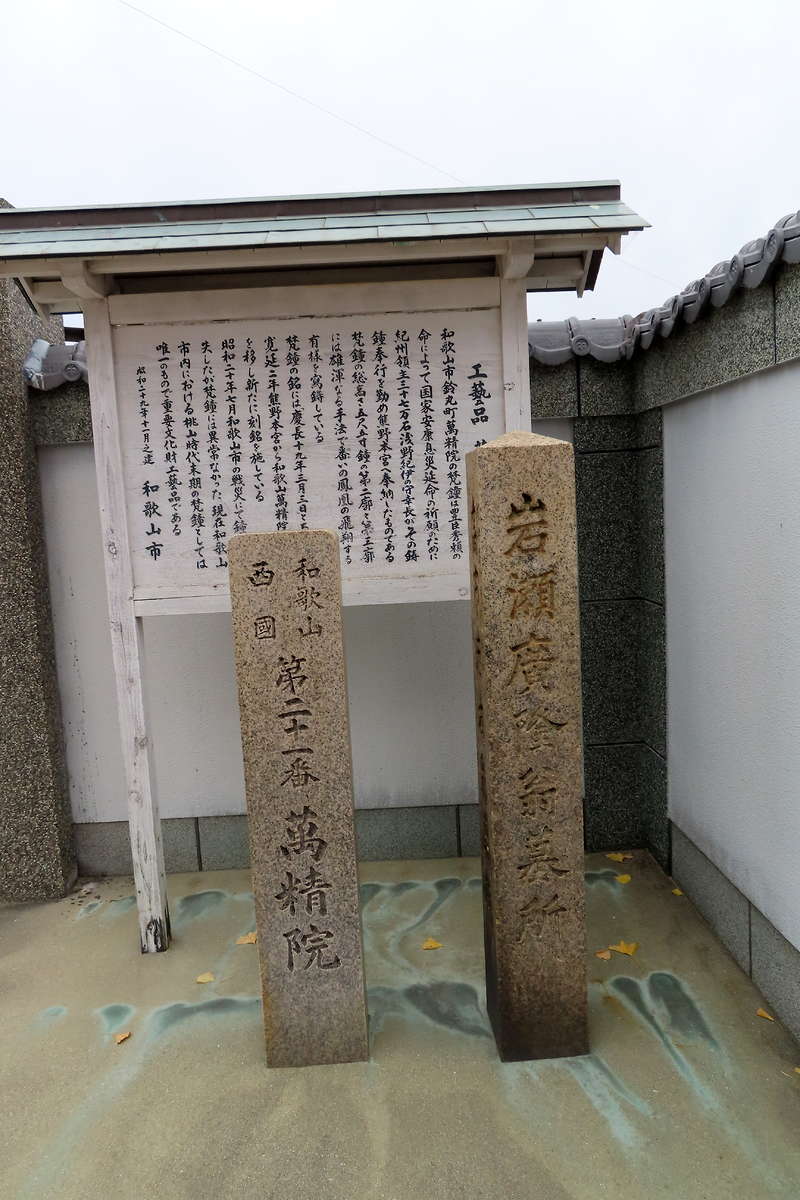 工藝品
和歌山市鈴丸町萬精院の梵鐘は豊臣秀頼の
命によって国家安康息災延命の祈願のために
紀州領主三十七万石浅野紀伊の守幸長がその鋳
鐘奉行を勤め熊野本宮へ奉納したものである
梵鐘の総高さ五尺五寸鐘の第二廓と第三廓
には雄渾なる手法で番いの鳳凰の飛翔する
有様を寫鋳している
梵鐘の銘には慶長十九年三月三日と
寛延二年熊野本宮から和歌山萬精院
を移し新たに刻銘を施している
昭和二十年七月和歌山市の戦災にて鐘
失したが梵鐘には異常なかった、現在和歌山
市内における桃山時代末期の梵鐘としては
唯一のもので重要文化財工藝品である
昭和二十九年十一月之建 和歌山市
岩瀬廣隆翁墓所
和歌山
西國
第二十一番 萬精院